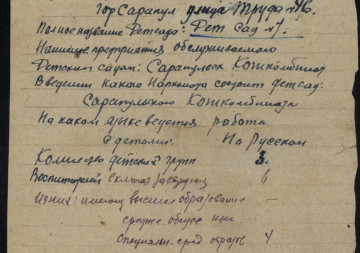 гор Сарапул улица Труда № 46.
Полное название Детсада: Дет сад № 1.
предприятия обслуживаемого
Детским садом: Сарапульск Кожкомбинат
В ведении какого Наркомата состоит детсад:
Сарапульского Кожкомбината
На каком языке ведется работа
с детьми. На Русском
Количество детских групп 3.
Воспитателей включая 6
Из них: имеющ высшее образование –
среднее общее
специальн. сред. образов 4